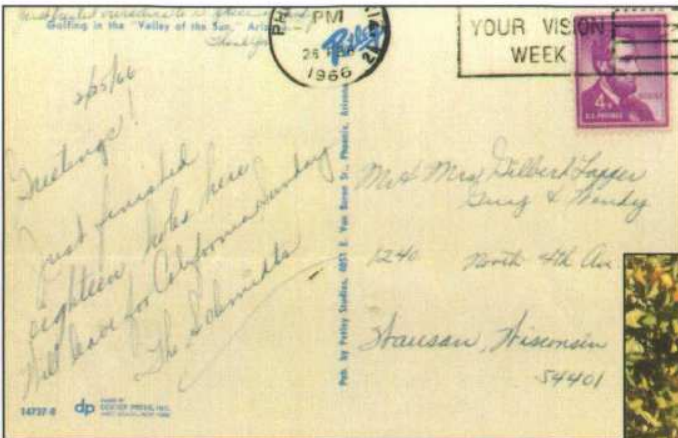 Golfing in the "Valley of the Sun," Arizona
Thank you
PM
26
1966
Petley
YOUR VISION
WEEK
4¢
U.S. POSTAGE
2/25/66
Greetings!
Just finished
eighteen holes here
Will leave for California Sunday
The Schmidts
Pub. by Petley Studios, 4051 E. Van Buren St., Phoenix, Arizona
Mr & Mrs Gilbert
& Wendy
1240 North 4th Av
Wausau, Wisconsin
54401
14737-B
dp
DEXTER PRESS, INC.
WEST NYACK, NEW YORK